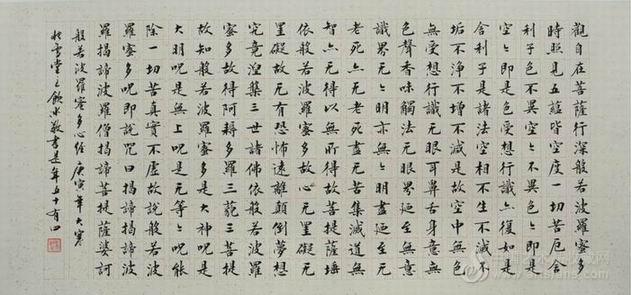 觀自在菩薩行深般若波羅蜜多
時照見五蘊皆空度一切苦厄舍
利子色不異空々不異色々即是
空々即是色受想行識亦復如是
舍利子是諸法空相不生不滅不
垢不淨不增不減是故空中無色
無受想行識无眼耳鼻舌身意無
色聲香味觸法无眼界廼至無意
識界无々明亦無々明盡廼至无
老死亦无老死盡无苦集滅道無
智亦无得以無所得故菩提薩埵
依般若波羅蜜多故心无罣礙无
罣礙故无有恐怖遠離顛倒夢想
究竟涅槃三世諸佛依般若波羅
蜜多故得阿耨多羅三藐三菩提
故知般若波羅蜜多是大神呪是
大明呪是無上呪是无等々呪能
除一切苦真實不虛故說般若波
羅蜜多呪即說呪曰揭諦揭諦波
羅揭諦波羅僧揭諦菩提薩婆訶
般若波羅蜜多心經 庚寅年大寒
雪堂之飲冰敬書是年五十有四